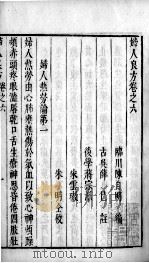 婦人良方卷之六
臨川陳自明 編
古吳薛 己 註
後學蔣宗澹
朱雲 校
朱 明 仝校
婦人熱勞論第一
婦人熱勞由心肺壅熱傷於氣血以致心神煩躁
頰赤頭疼眼澀唇乾口舌生瘡神思昏倦四肢壯